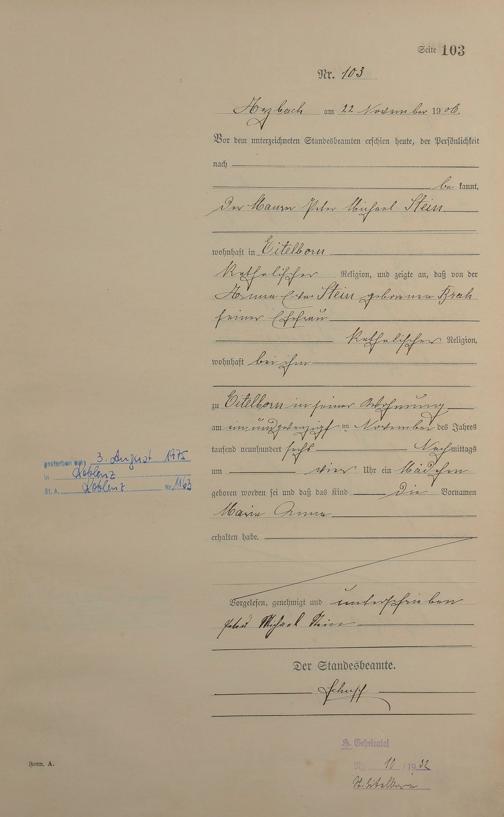 Seite 103
Nr. 103
am 22 November 1906.
Vor dem unterzeichneten Standesbeamten erschien heute, der Persönlichkeit
nach
be kannt,
der Maurer Peter Michael Stein
wohnhaft in Eitelborn
katholischer Religion, und zeigte an, daß von der
Anna Eva Stein geborenen
seiner Ehefrau
katholischer Religion,
wohnhaft bei ihm
zu Eitelborn in seiner Wohnung
am einundzwanzigsten November des Jahres
tausend neunhundert sechs Nachmittags
um vier Uhr ein Mädchen
geboren worden sei und daß das Kind die Vornamen
Maria Anna
erhalten habe.
Vorgelesen, genehmigt und unterschrieben
Peter Michael Stein
Der Standesbeamte.
gestorben am 3. August 1975
in Koblenz
St. A. Koblenz Nr. 1163
Form. A.
10 1932